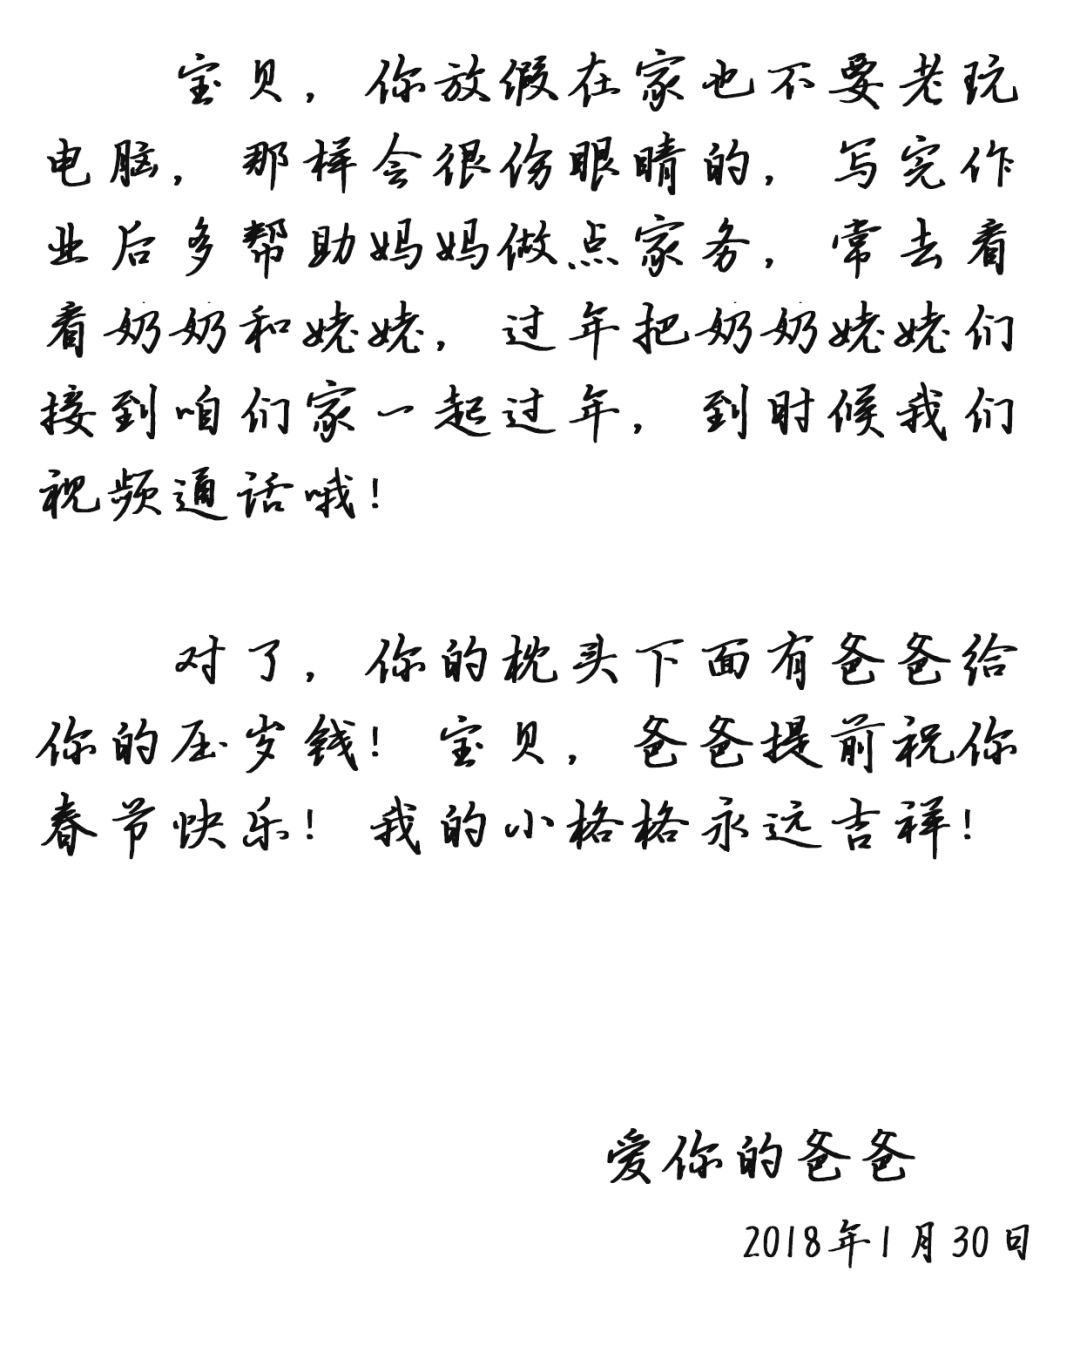 宝贝，你放假在家也不要老玩
电脑，那样会很伤眼睛的，写完作
业后多帮助妈妈做点家务，常去看
看奶奶和姥姥，过年把奶奶姥姥们
接到咱们家一起过年，到时候我们
视频通话哦！
对了，你的枕头下面有爸爸给
你的压岁钱！宝贝，爸爸提前祝你
春节快乐！我的小格格永远吉祥！
爱你的爸爸
2018年1月30日